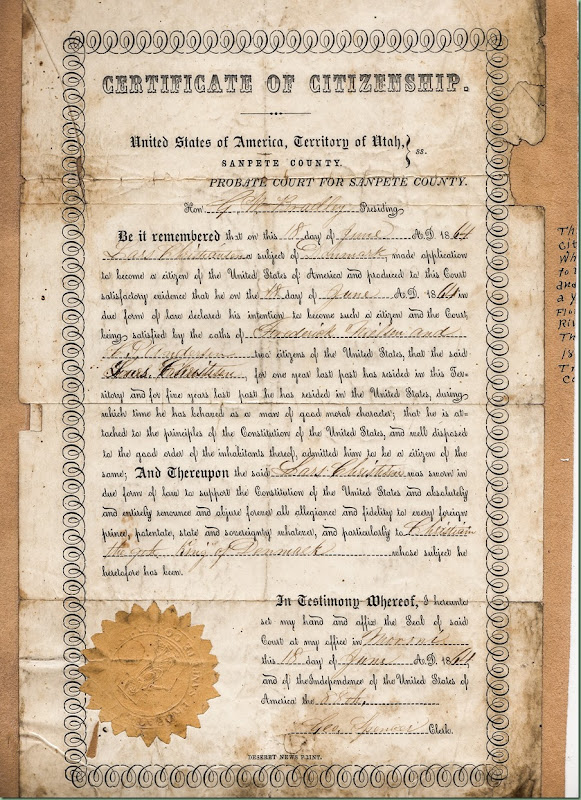 CERTIFICATE OF CITIZENSHIP.
United States of America, Territory of Utah, } ss.
SANPETE COUNTY.
PROBATE COURT FOR SANPETE COUNTY.
Hon. G W Bradley Presiding
Be it remembered that on this 18 day of June A.D. 1864
Lars Christiansen a subject of Denmark, made application
to become a citizen of the United States of America and produced to this Court
satisfactory evidence that he on the 18 day of June A.D. 1864 in
due form of law declared his intention to become such a citizen and the Court
being satisfied by the oaths of Frederick Nielsen and
two citizens of the United States, that the said
Christian, for one year last past has resided in this Ter-
ritory and for five years last past he has resided in the United States, during
which time he has behaved as a man of good moral character; that he is at-
tached to the principles of the Constitution of the United States, and well disposed
to the good order of the inhabitants thereof, admitted him to be a citizen of the
same; And Thereupon the said Lars Christian was sworn in
due form of law to support the Constitution of the United States and absolutely
and entirely renounce and abjure forever all allegiance and fidelity to every foreign
prince, potentate, state and sovereignty whatever, and particularly to Christian
King of Denmark whose subject he
heretofore has been.
In Testimony Whereof, I hereunto
set my hand and affix the Seal of said
Court at my office in Moroni
this 18 day of June A.D. 1864
and of the Independence of the United States of
America the
Geo. Spencer Clerk.
DESERET NEWS PRINT.
Th
Cit
Wh
to
and
a y
Flo
Ri
Th
18
Tr
Co